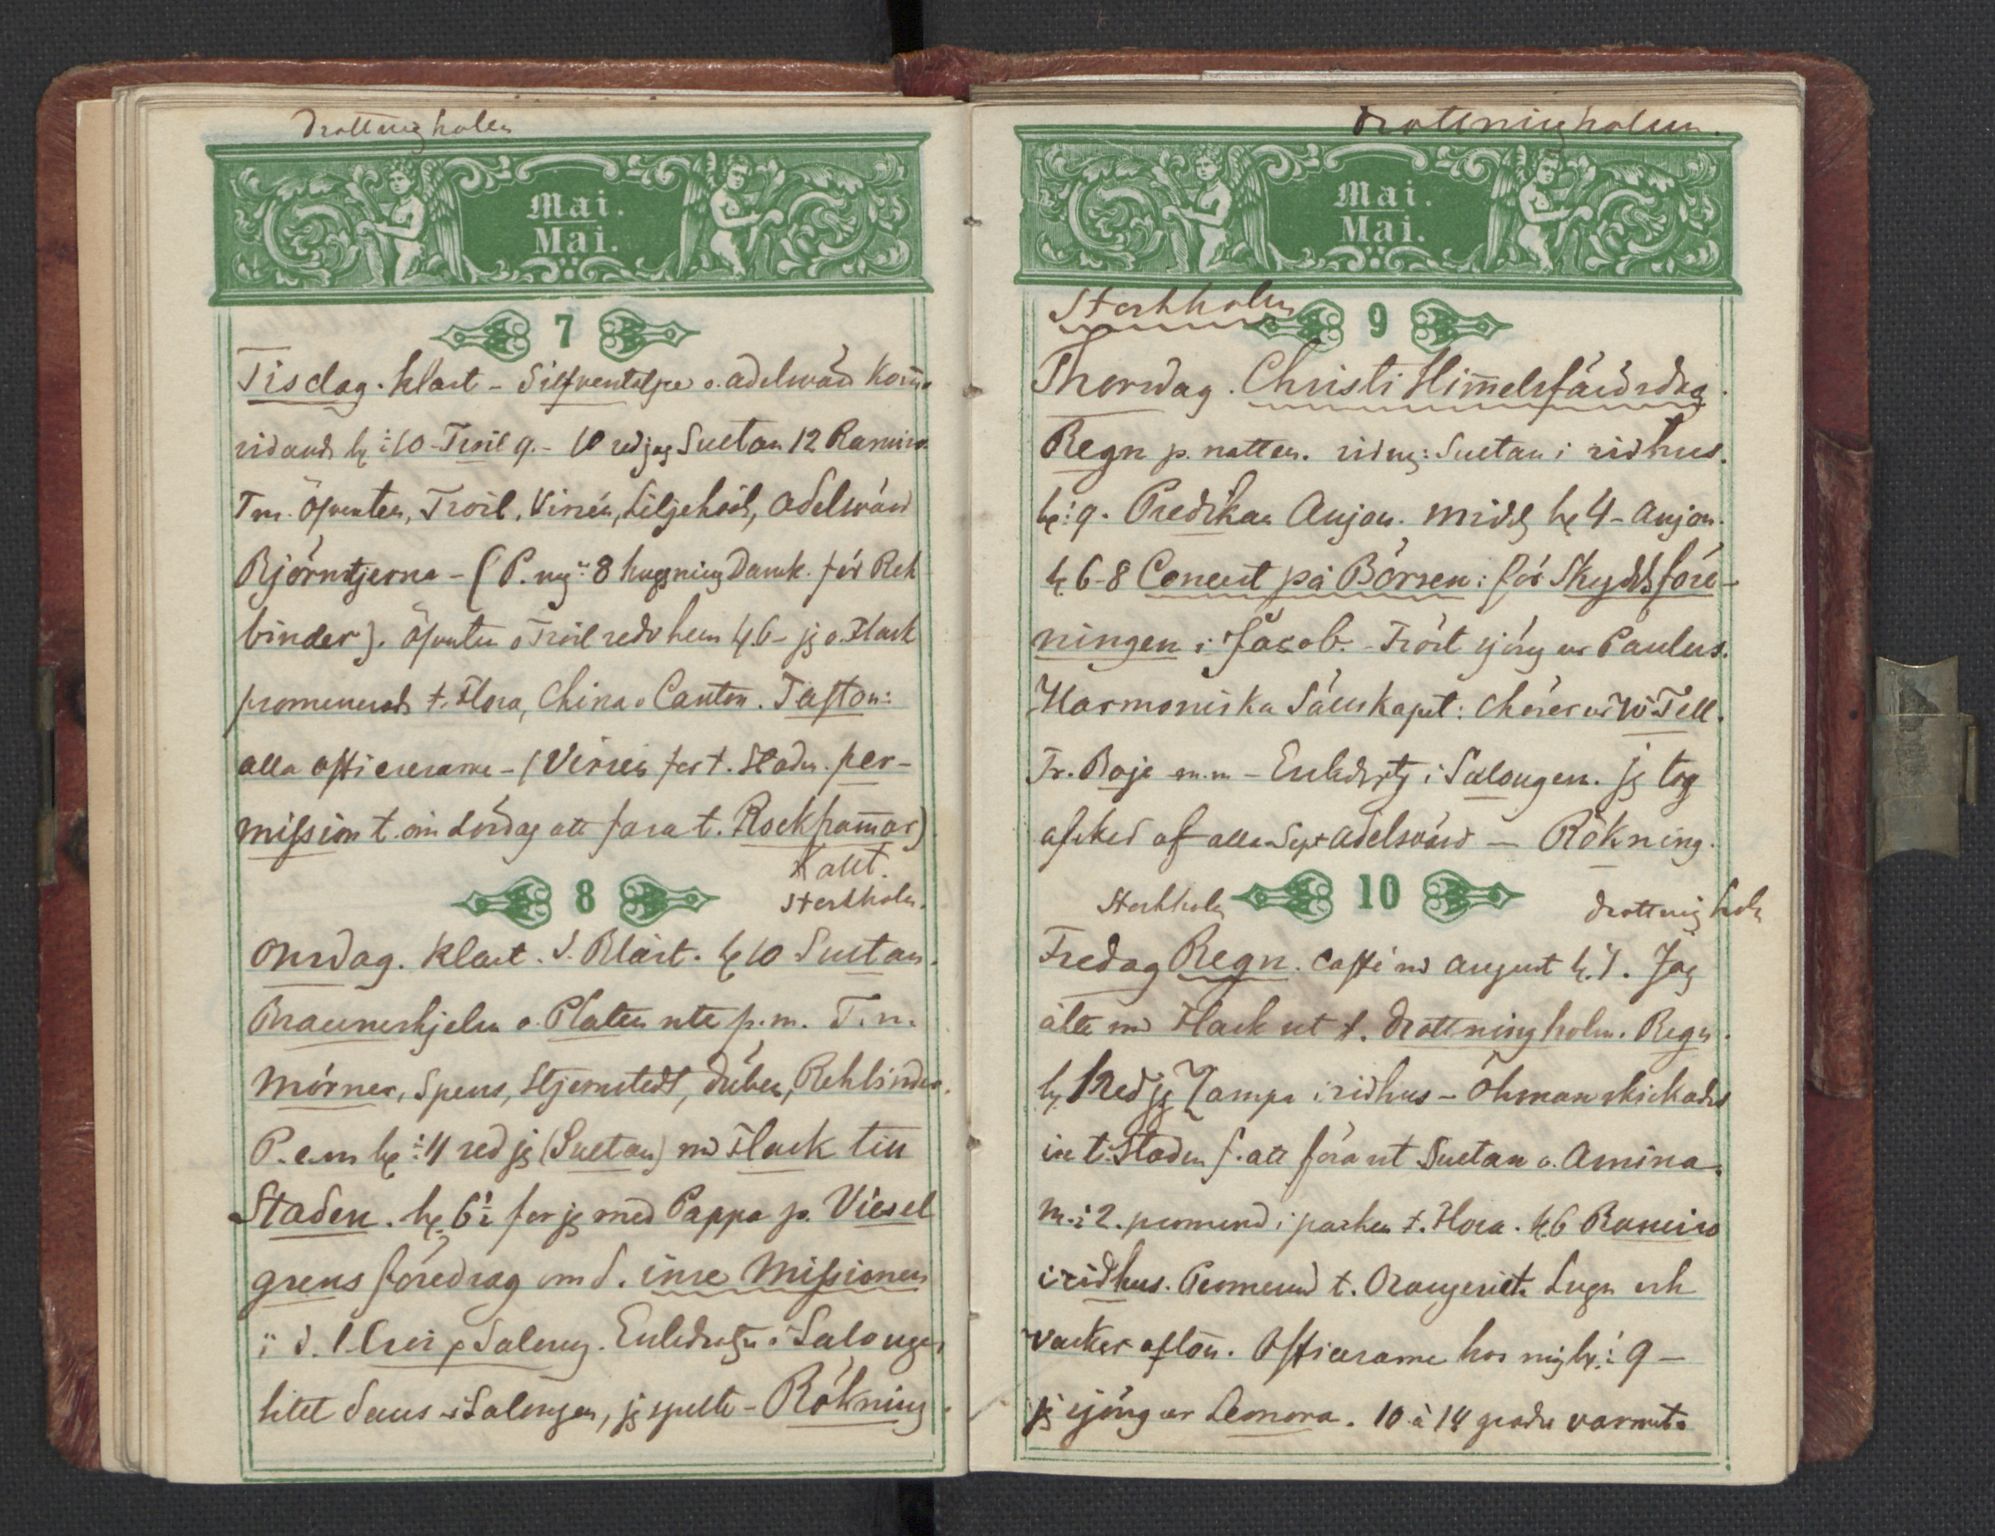 Drottningholm
Mai.
Mai.
7
Tisdag. klart - Silfverstolpe o. Adelswärd kom̄o
ridande kl ½10 - Troil 9. - 10 red jag Sultan 12 Ramiro.
T.m. Öfversten, Troil, Virsén, Liljehöök, Adelswärd
Björnstjerna - (P. mg: 8 huggning Damk. för Reh
binder). Öfversten o Troil redo hem kl 6 - jg o. Flack
promenerade t. Flora, China o Canton. T afton:
alla officerarne - (Virsén for t. Staden. per-
mission t. om Lördag att fara t. Rockham̄ar)
Kallt.
8
Stockholm.
Onsdag. Klart. S. Blåst. kl 10 Sultan.
Braunerhjelm o. Platen ute f.m. T.m.
Mörner, Spens, Stjernstedt, Düben, Rehbinder.
P. e.m kl ½ 11 red jg (Sultan) md Flack till
Staden. kl 6½ for jg med Pappa p. Viesel
grens föredrag om d. inre Missionen
i d. l. Croix s Salong. Enledugn i Salongen
litet dans i Salongen, jg spelte - Rökning.
Drottningholm.
Mai.
Mai.
Stockholm
9
Thorsdag. Christi Him̄elsfärdsdag.
Regn p. natten. ridng: Sultan i ridhus.
kl ½ 9. Predikan Anjou. midd kl 4 - Anjou.
kl 6-8 Concert på Börsen: för Skyddsföre-
ningen i Jacob. - Troil sjöng ur Paulus.
Harmoniska Sällskapet: Chörer ur W Tell.
Fr. Boje m.m - Enledugn i Salongen. jg tog
afsked af alla Sept Adelswärd — Rökning.
Stockholm
10
Drottningholm
Fredag Regn. Caffé md August kl. 7. Jag
åkte md Flack ut t. Drottningholm. Regn.
kl 12 red jg Zampa i ridhus - Öhman skickades
in t. Staden f. att föra ut Sultan o. Amina.
M. ½ 2. promend i parken t. Flora. kl 6 Ramiro
i ridhus. Promend t. Orangeriet. Lugn och
vacker afton. Officerarne hos mig kl. ½ 9 —
jg sjöng ur Leonora. 10 à 14 grader varmt.